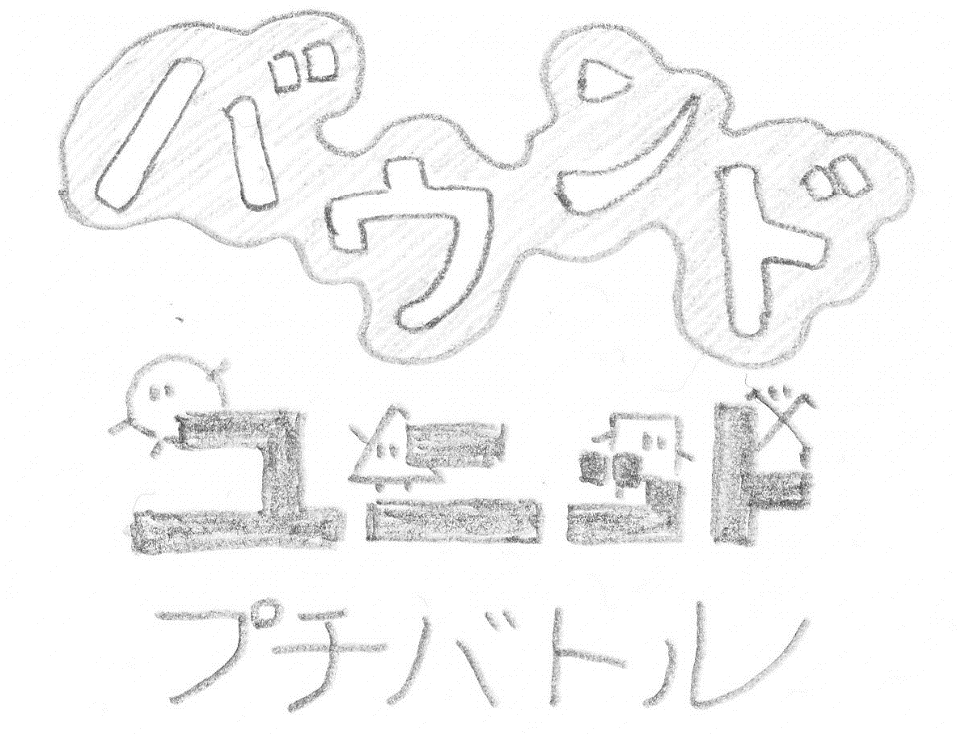 バウンド
ユニット
プチバトル